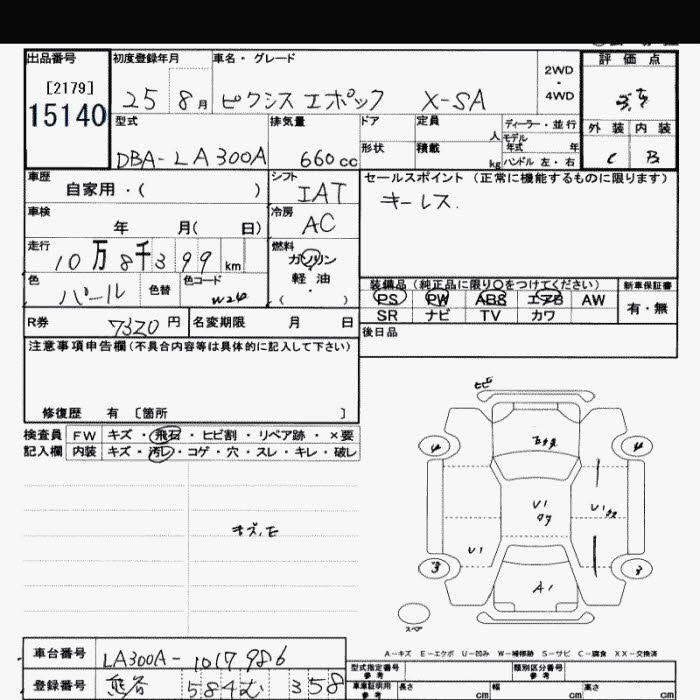 出品番号 初度登録年月 車名・グレード 評価点
[2179]
15140
25 8月 ピクシス エポック X-SA
2WD
・
4WD
型式 排気量 ドア 定員 人 ディーラー・並行 外装 内装
モデル年式 年
DBA-LA300A 660cc 形状 積載 kg ハンドル 左・右 C B
車歴 シフト セールスポイント (正常に機能するものに限ります)
自家用・( ) IAT キーレス.
車検 冷房
年 月( 日) AC
走行 燃料
10万8千399km ガソリン
・
軽油
( )
色 色替 色コード
パール W24
装備品(純正品に限り○をつけてください) 新車保証書
PS PW ABS エアB AW 有・無
SR ナビ TV カワ
R券 7320円 名変期限 月 日 後日品
注意事項申告欄(不具合内容等は具体的に記入して下さい)
修復歴 有 〔箇所 〕
検査員 FW キズ・飛石・ヒビ割・リペア跡・×要
記入欄 内装 キズ・汚レ・コゲ・穴・スレ・キレ・破レ
ヒビ
4 4
U1
U1
U1
3 3
A1
スペア
A-キズ E-エクボ U-凹み W-補修跡 S-サビ C-腐食 XX-交換済
車台番号 LA300A-1017986
登録番号 熊谷 584む 358
型式指定番号 参考 類別区分番号 参考
車証証明用 参考 長さ cm 幅 cm 高さ cm